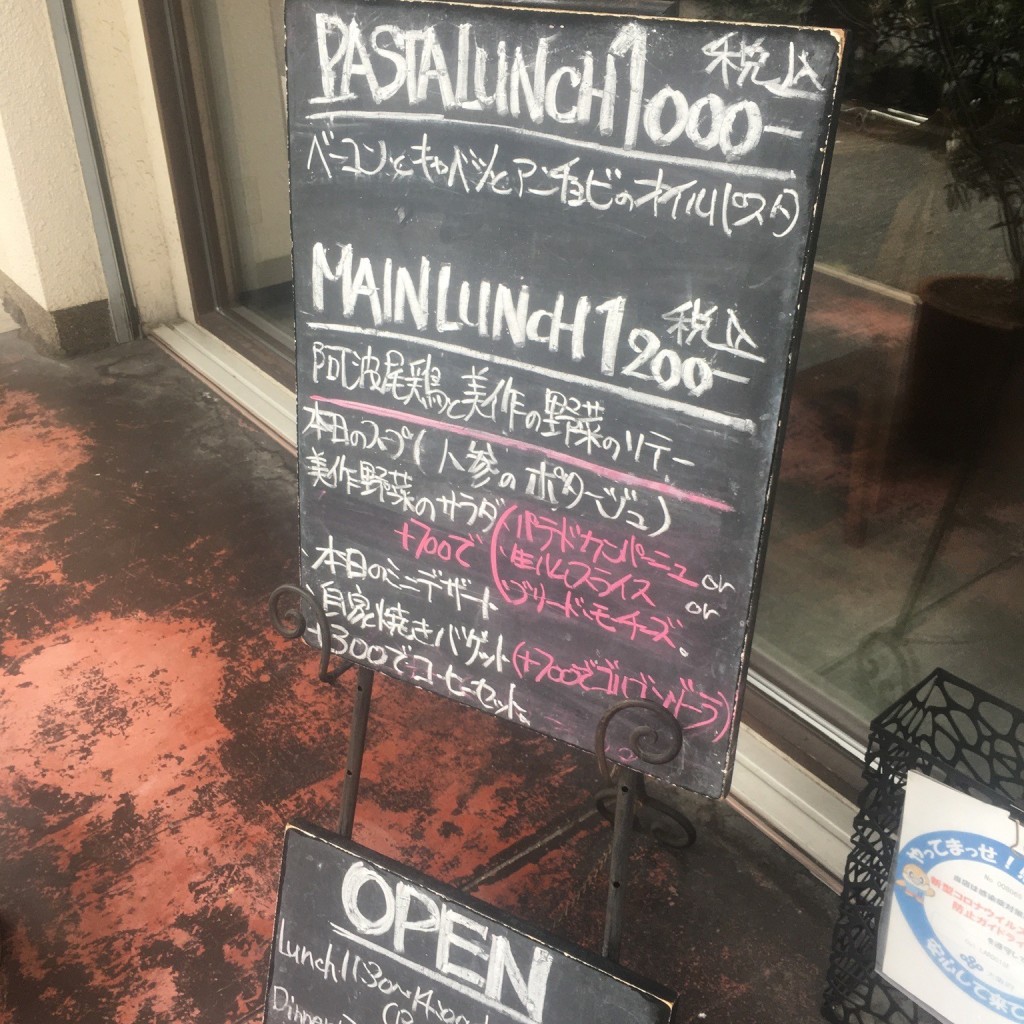 PASTA LUNCH 1000- 税込
ベーコンとキャベツとアンチョビのオイルパスタ
MAIN LUNCH 1200- 税込
阿波尾鶏と美作の野菜のソテー
本日のスープ(人参のポタージュ)
美作野菜のサラダ
+700で
(パテドカンパーニュ or
生ハムフライス or
ブリードモーチーズ。
本日のミニデザート
自家焼きバゲット(+700で
+300でコーヒーセット。
OPEN
Lunch 1130~
Dinner
やってまっせ!
新型コロナウイルス
防止ガイドライ
安心して来て